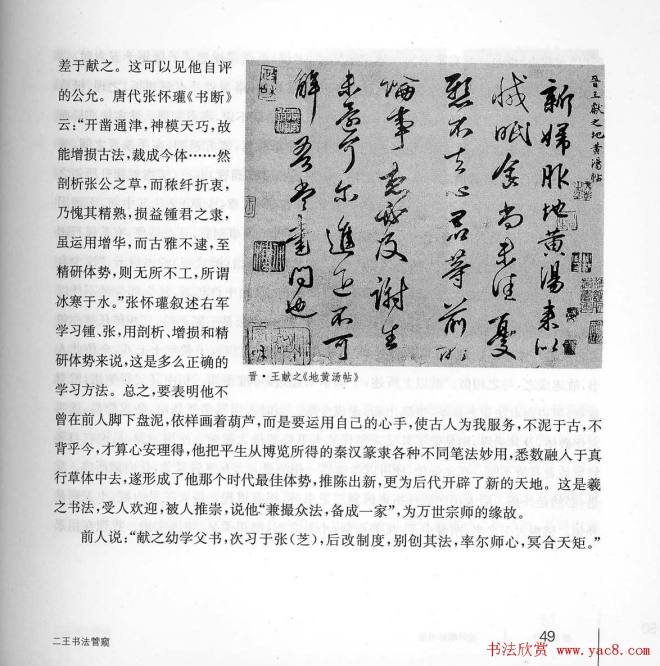 差于献之。这可以见他自评
的公允。唐代张怀瓘《书断》
云:“开凿通津,神模天巧,故
能增损古法,裁成今体……然
剖析张公之草,而秾纤折衷,
乃愧其精熟,损益锺君之隶,
虽运用增华,而古雅不逮,至
精研体势,则无所不工,所谓
冰寒于水。”张怀瓘叙述右军
学习锺、张,用剖析、增损和精
研体势来说,这是多么正确的
学习方法。总之,要表明他不
晋王獻之地黄湯帖
新婦服地黄湯来似
減眠食尚未佳憂
懸不去心君等前所
論事想必及謝生
未還何尔進退不可
解吾當書問也
晋·王献之《地黄汤帖》
曾在前人脚下盘泥,依样画着葫芦,而是要运用自己的心手,使古人为我服务,不泥于古,不
背乎今,才算心安理得,他把平生从博览所得的秦汉篆隶各种不同笔法妙用,悉数融入于真
行草体中去,遂形成了他那个时代最佳体势,推陈出新,更为后代开辟了新的天地。这是羲
之书法,受人欢迎,被人推崇,说他“兼撮众法,备成一家”,为万世宗师的缘故。
前人说:“献之幼学父书,次习于张(芝),后改制度,别创其法,率尔师心,冥合天矩。”
二王书法管窥
49
书法欣赏 www.yac8.com